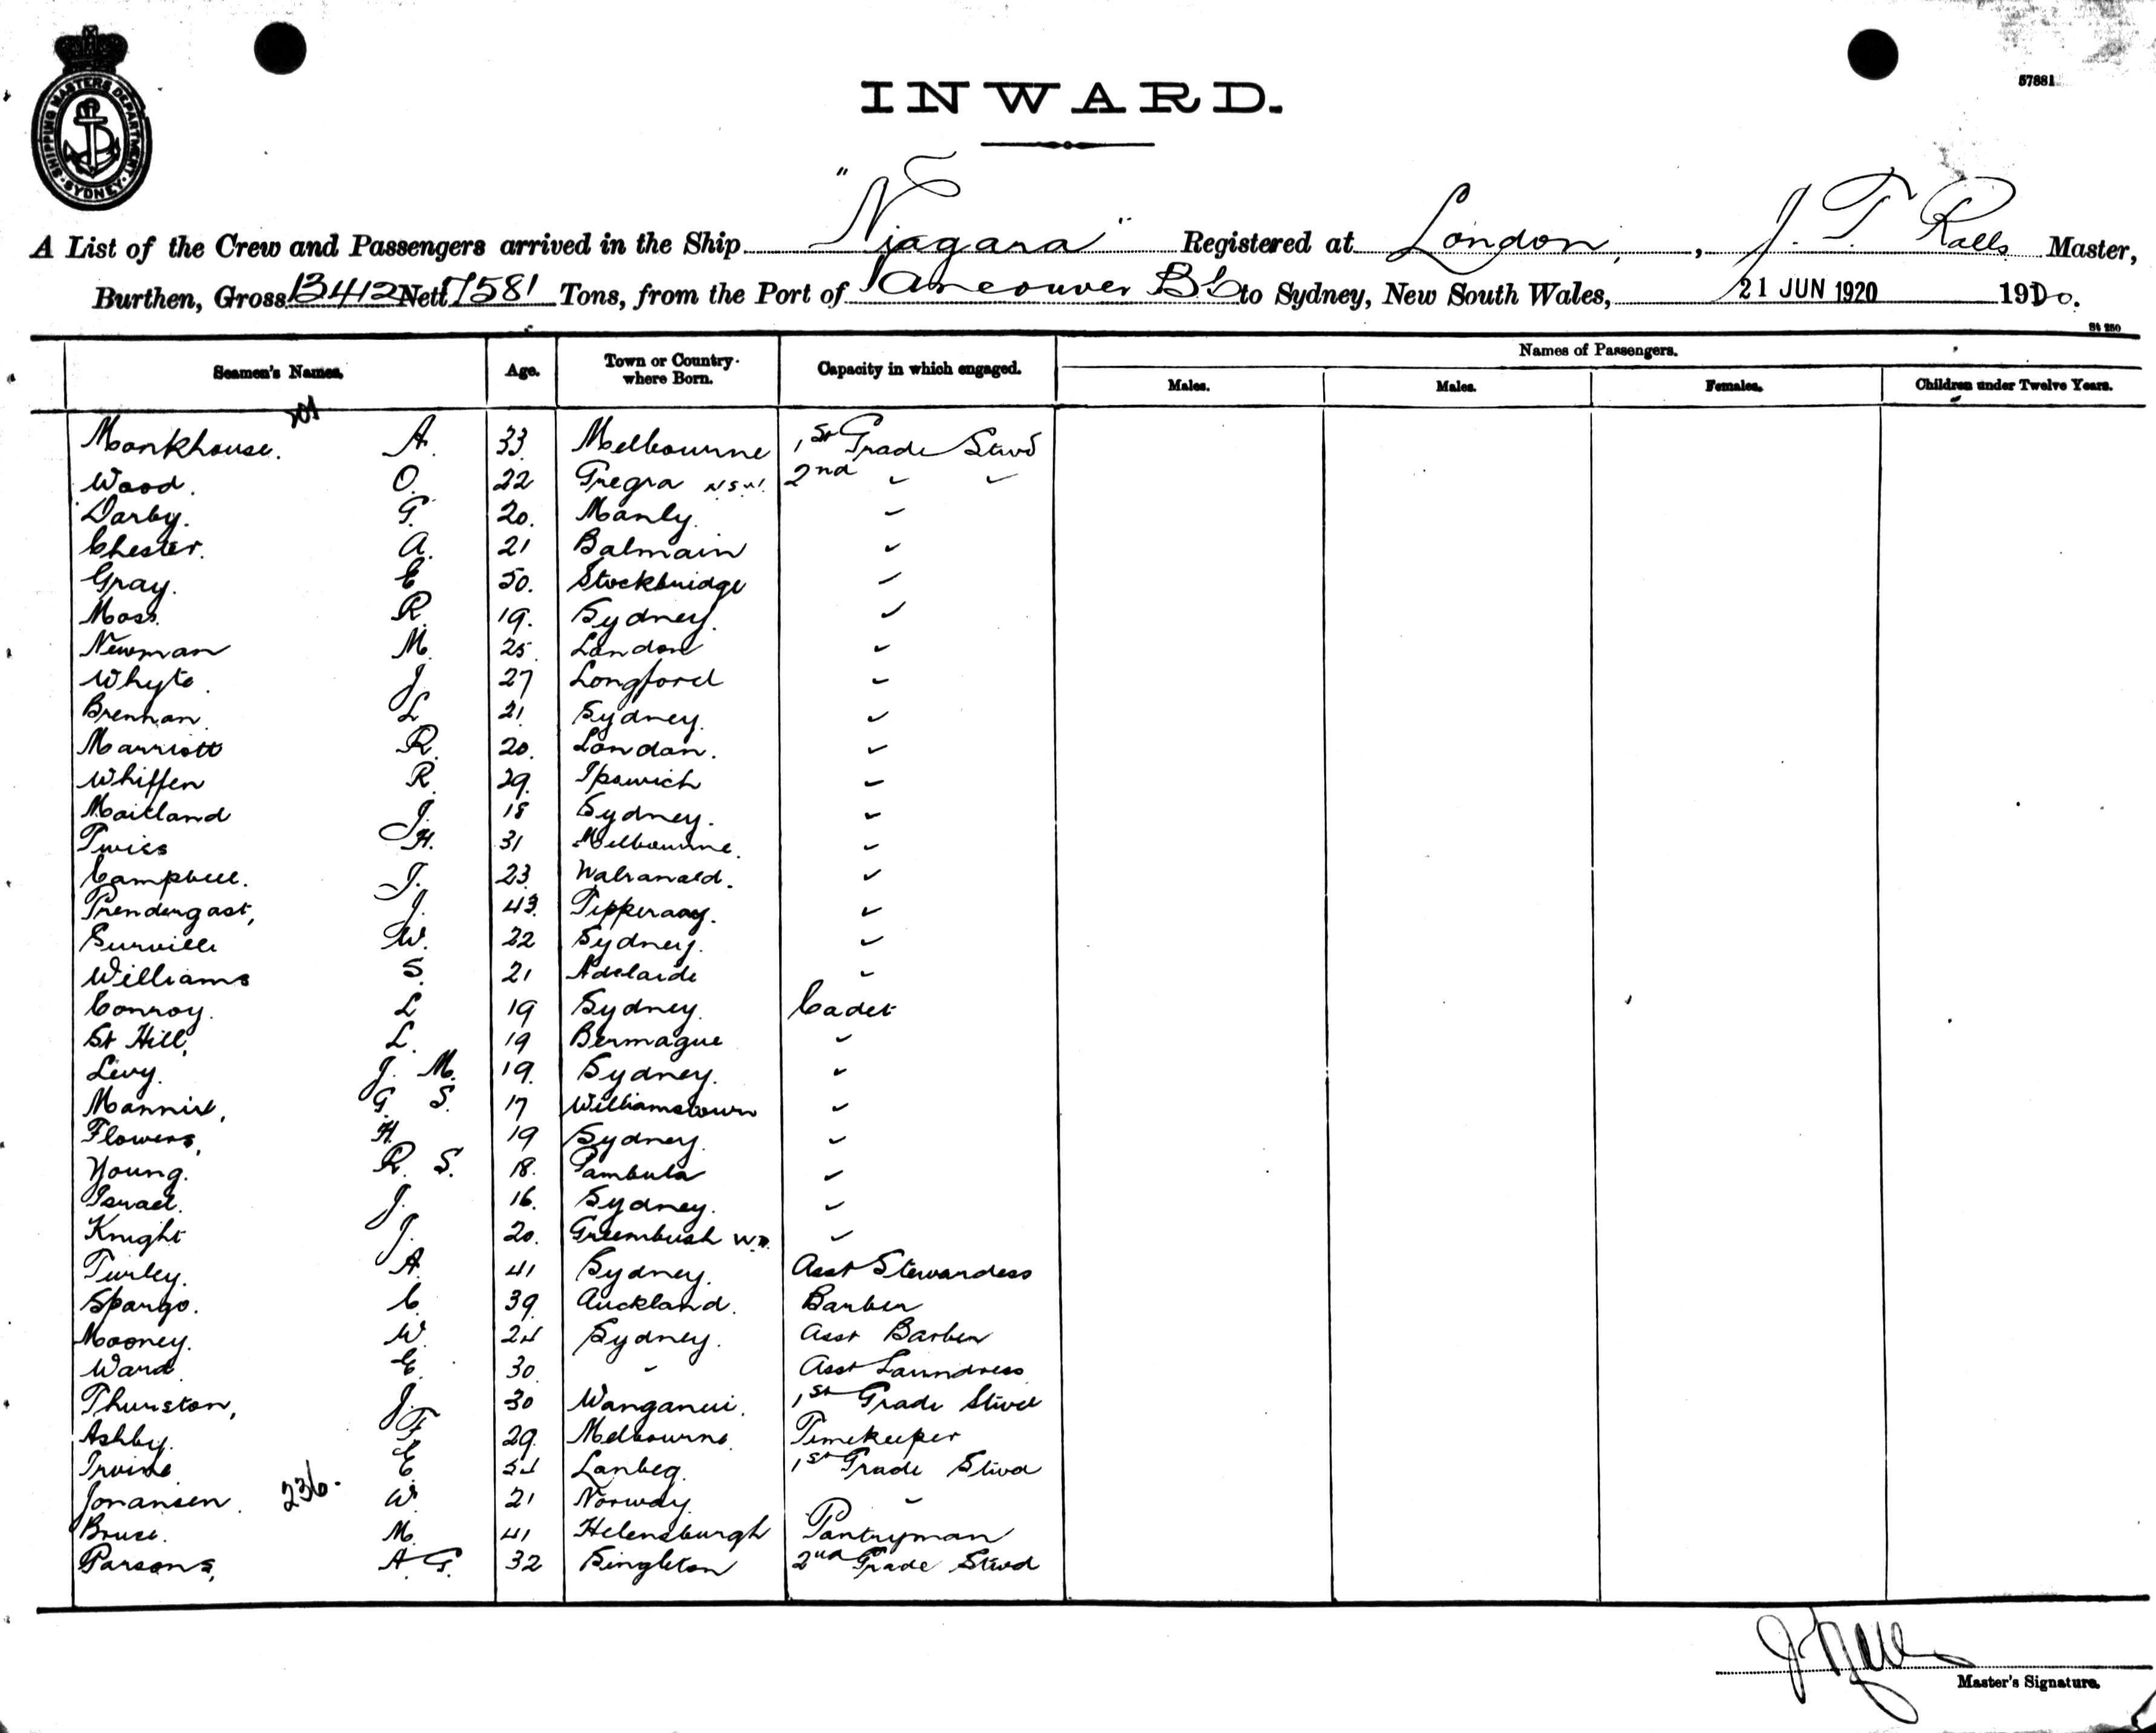 SHIPPING MASTERS DEPARTMENT · SYDNEY ·
INWARD.
57881
A List of the Crew and Passengers arrived in the Ship "Niagara" Registered at London, J. T. Rolls Master,
Burthen, Gross 13412 Nett 7581 Tons, from the Port of Vancouver BC to Sydney, New South Wales, 21 JUN 1920 1920.
St 250
Seamen's Names. Age. Town or Country where Born. Capacity in which engaged. Names of Passengers.
Males. Males. Females. Children under Twelve Years.
201
Monkhouse. A. 33. Melbourne 1st Grade Stwd
Wood. O. 22 Gregra NSW. 2nd " "
Darby. G. 20. Manly. "
Chester. A. 21 Balmain "
Gray. E 50. Stockbridge "
Moss. R. 19. Sydney. "
Newman M. 25 London "
Whyte. J. 27 Longford "
Brennan. L 21 Sydney. "
Marriott R. 20. London. "
Whiffen R 29. Ipswich "
Maitland J. 18 Sydney. "
Twiss H. 31 Melbourne. "
Campbell. J. 23 Balranald. "
Prendergast, J. 43. Tipperary. "
Surville W. 22 Sydney. "
Williams S. 21 Adelaide "
Conroy. L 19 Sydney. Cadet
St Hill, L. 19 Bermague "
Levy. J. M. 19. Sydney. "
Mannix, G. S. 17 Williamstown "
Flowers, H. 19 Sydney. "
Young. R. S. 18. Pambula "
Israel. J. 16. Sydney. "
Knight J. 20. Greenbush WA. "
Turley. A. 41 Sydney. Asst Stewardess
Spargo. C. 39. Auckland. Barber
Mooney. W. 24 Sydney. Asst Barber
Ward E. 30. " Asst Laundress
Thurston, J. 30 Wanganui. 1st Grade Stwd
Ashby. F. 29. Melbourne. Timekeeper
Irvine E Lanbeg. 1st Grade Stwd
Johansen. 236. W. 21 Norway. "
Bruce. M. 41 Helensburgh Pantryman
Parsons, A. G. 32 Singleton 2nd Grade Stwd
Master's Signature.